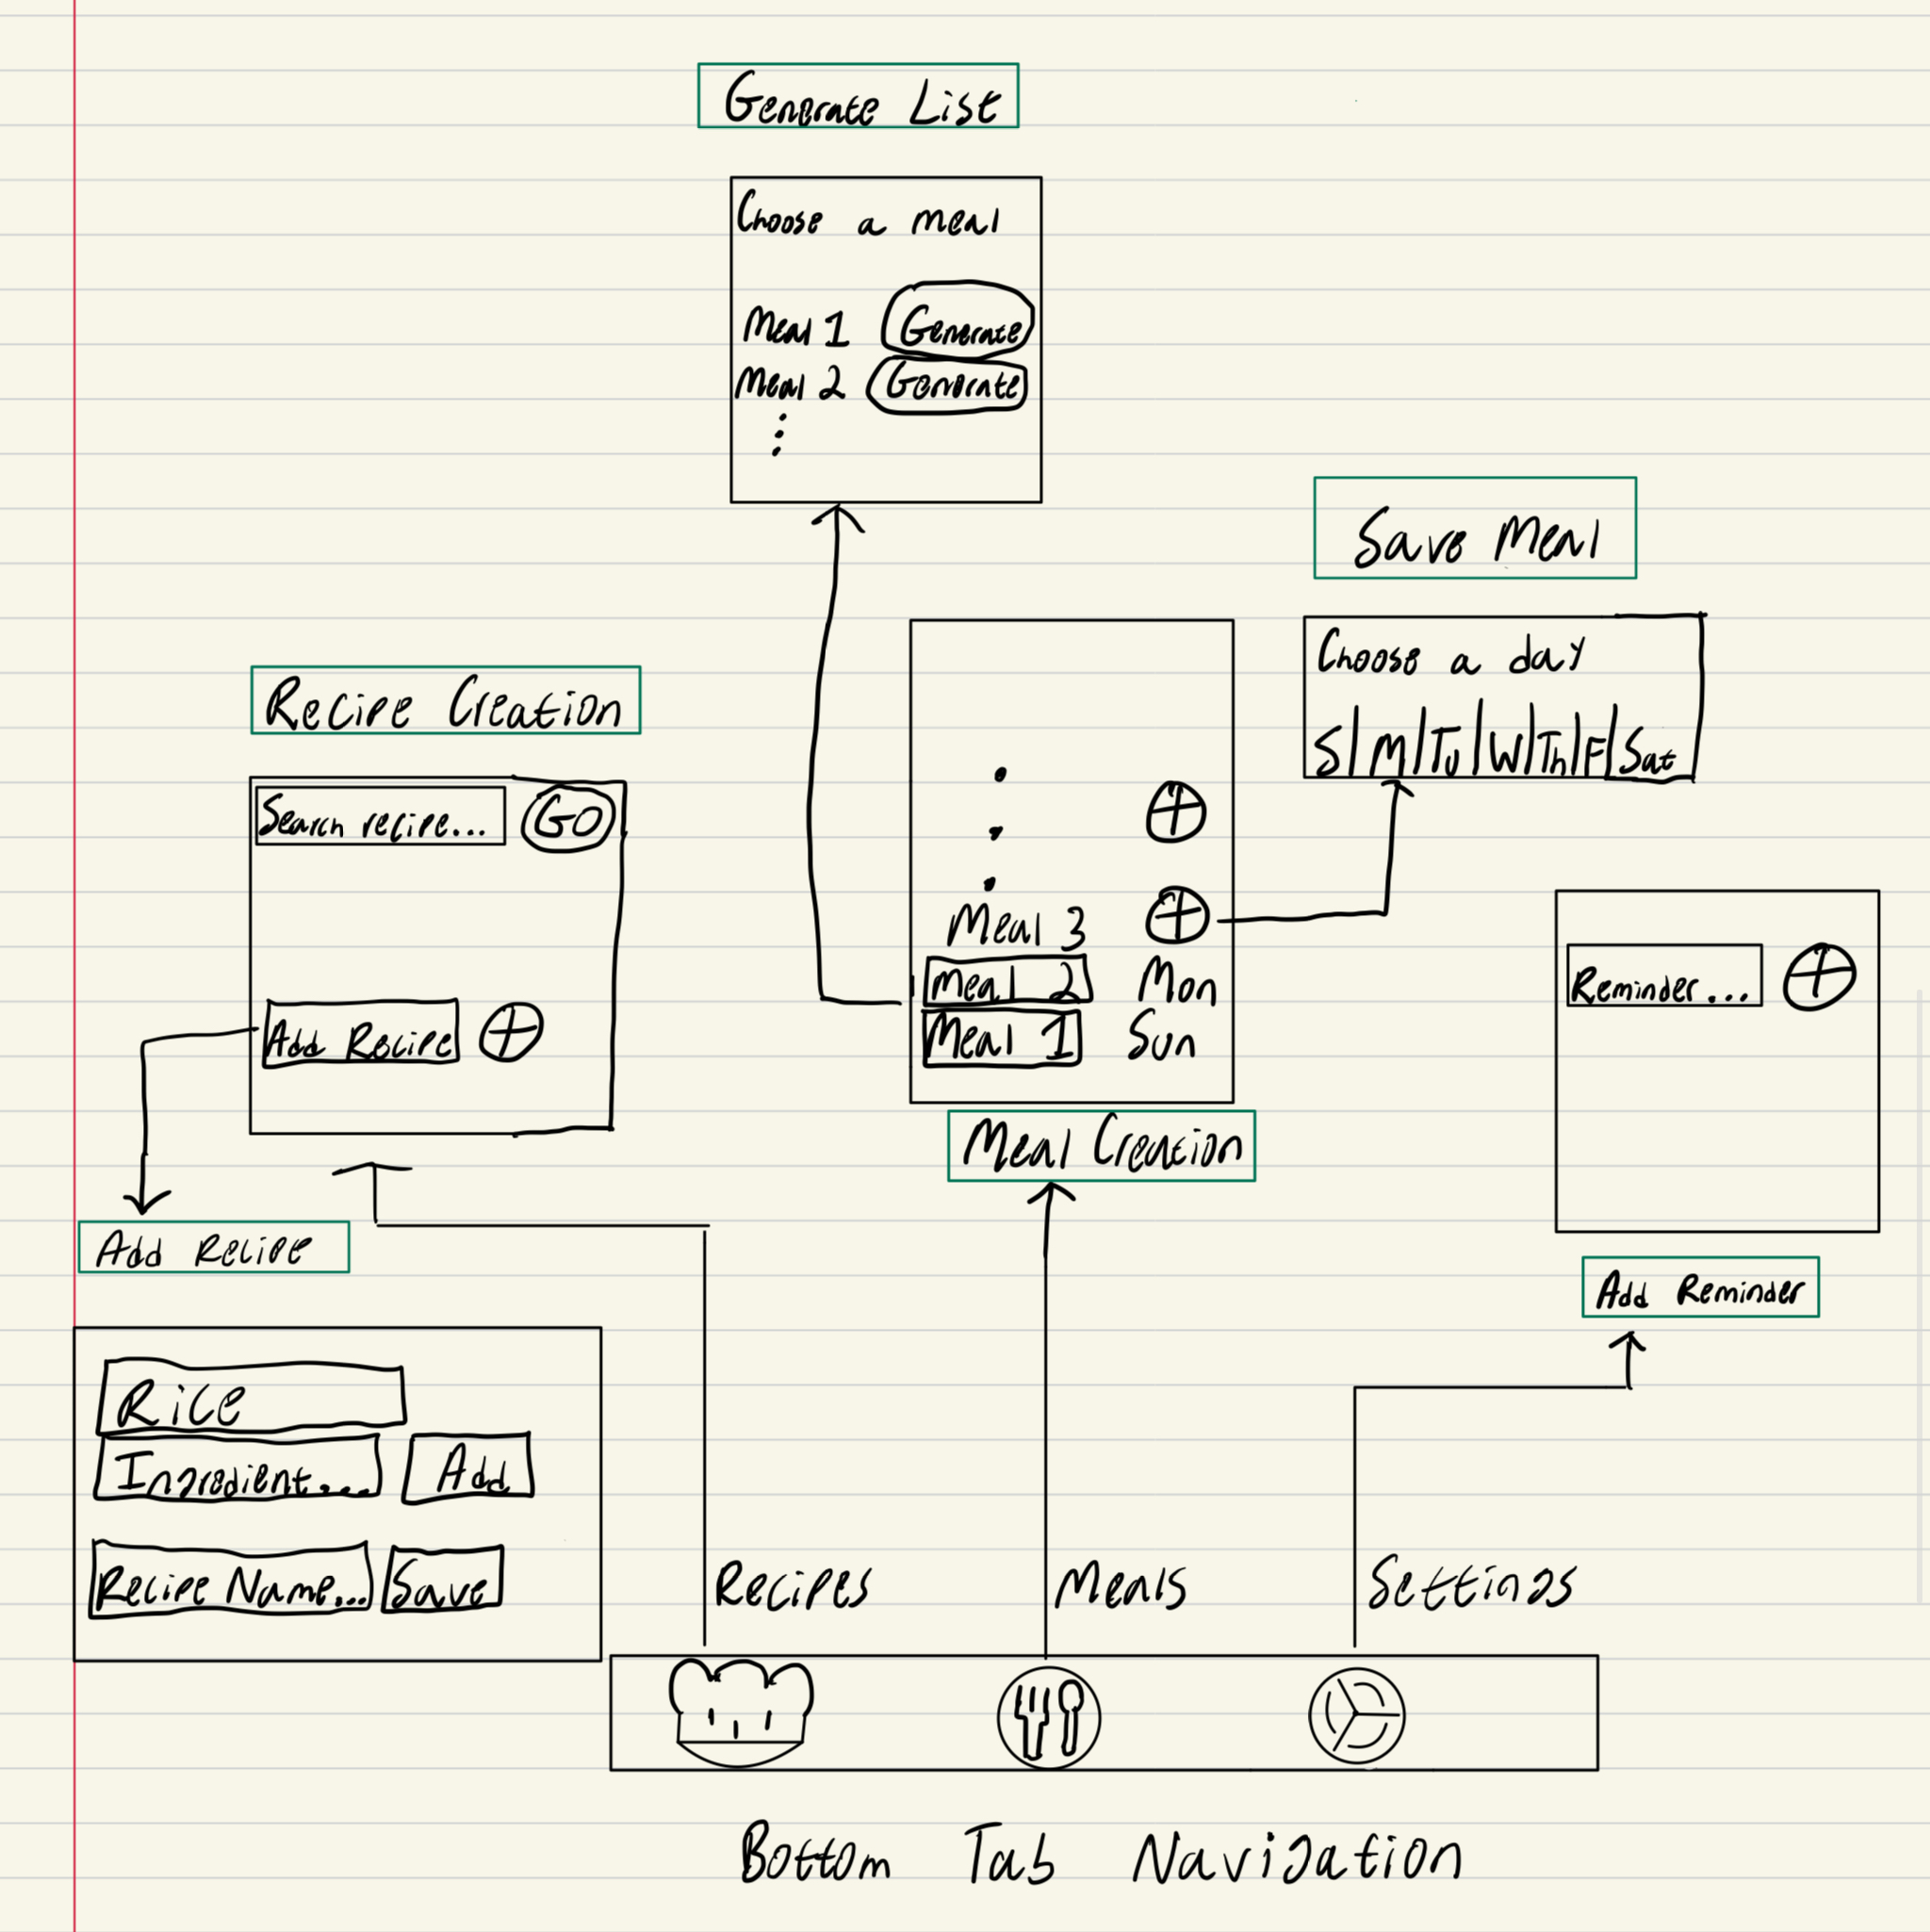 Generate List
Choose a meal
Meal 1 Generate
Meal 2 Generate
Save Meal
Choose a day
S/M/Tu/W/Th/F/Sat
Recipe Creation
Search recipe... GO
Add Recipe
Meal 3
Meal 2 Mon
Meal 1 Sun
Meal Creation
Reminder...
Add Reminder
Add Recipe
Rice
Ingredient... Add
Recipe Name... Save
Recipes
Meals
Settings
Bottom Tab Navigation